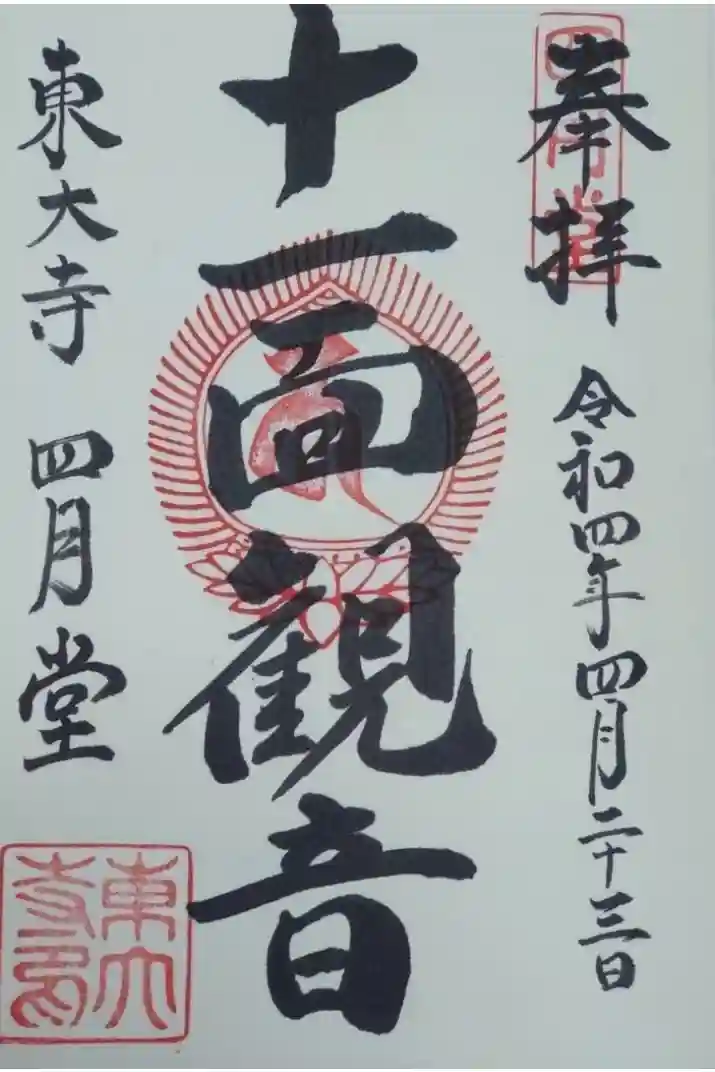 奉拝
四月堂
令和四年四月二十三日
十一面観音
東大寺 四月堂
東大寺印